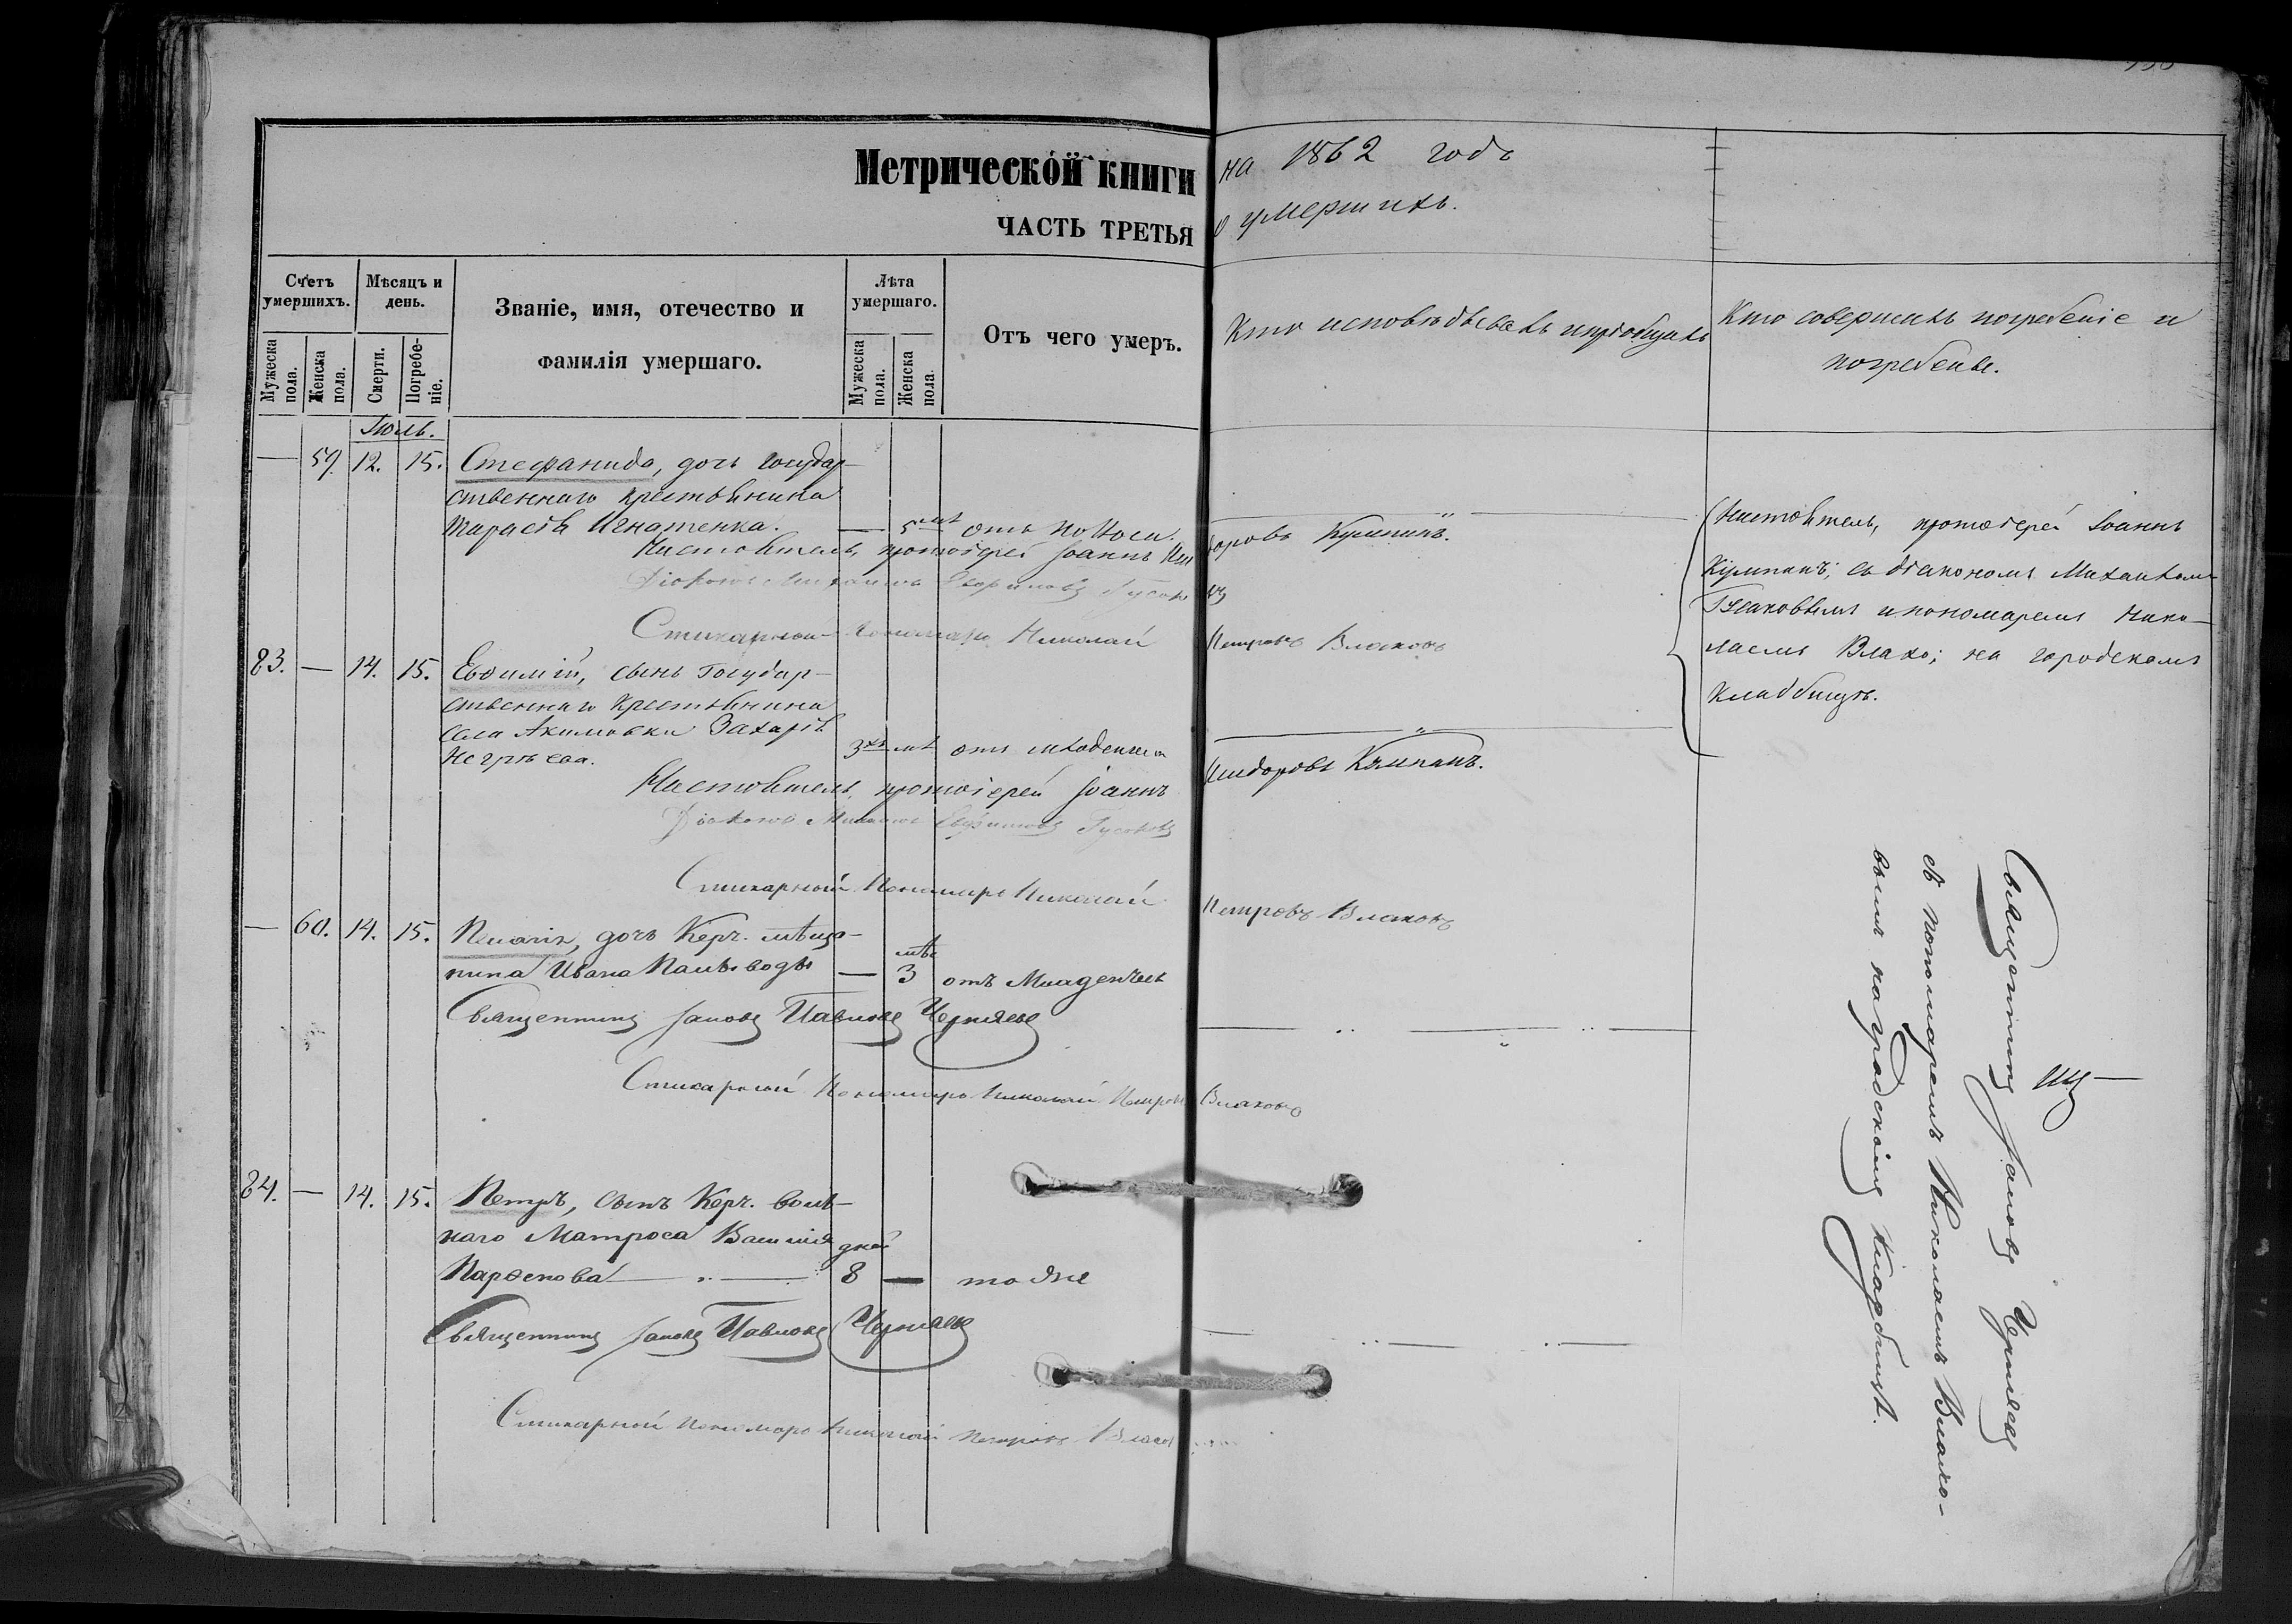 Метрической книги на 1862 годъ
ЧАСТЬ ТРЕТЬЯ о умершихъ.
Счетъ умершихъ.
Мужеска пола.
Женска пола.
Мѣсяцъ и день.
Смерти.
Погребеніе.
Званіе, имя, отечество и
фамилія умершаго.
Лѣта умершаго.
Мужеска пола.
Женска пола
Отъ чего умеръ.
Кто исповѣдывалъ и пріобщалъ
Кто совершилъ погребеніе и
погребены.
Іюль.
— 59. 12. 15. Стефанида, дочь государ-
ственнаго крестьянина
Тарасія Игнатенка. — 5 лѣт отъ поноса.
Настоятель, протоіерей Іоаннъ Исидоровъ Кумпанъ.
Діаконъ Михаилъ Гусаковъ
Стихарный Пономарь Николай Петровъ Влаховъ
Настоятель, протоіерей Іоаннъ
Кумпанъ; съ діакономъ Михаиломъ
Гусаковымъ и пономаремъ Нико-
лаемъ Влахо; на городскомъ
кладбищѣ.
83. — 14. 15. Евфимій, сынъ государ-
ственнаго крестьянина
села Акимовки Захарія
Негрѣева. 3хъ лѣт отъ младенч
Настоятель, протоіерей Іоаннъ Исидоровъ Кумпанъ.
Діаконъ Михаилъ Гусаковъ
Стихарный Пономарь Николай Петровъ Влаховъ
— 60. 14. 15. Пелагія, дочь Керч. мѣща-
нина Ивана Палываоды — 3 мѣс отъ Младенчес
Священникъ Іаковъ Павловъ Черняевъ
Стихарный Пономарь Николай Петровъ Влаховъ
84. — 14. 15. Петръ, сынъ Керч. воль-
наго Матроса Василія
Парфенова — 8 дней — тоже
Священникъ Іаковъ Павловъ Черняевъ
Стихарный Пономарь Николай Петровъ Влахо
Священникъ Іаковъ Черняевъ
съ пономаремъ Николаемъ Влахо-
вымъ на градскомъ кладбищѣ.